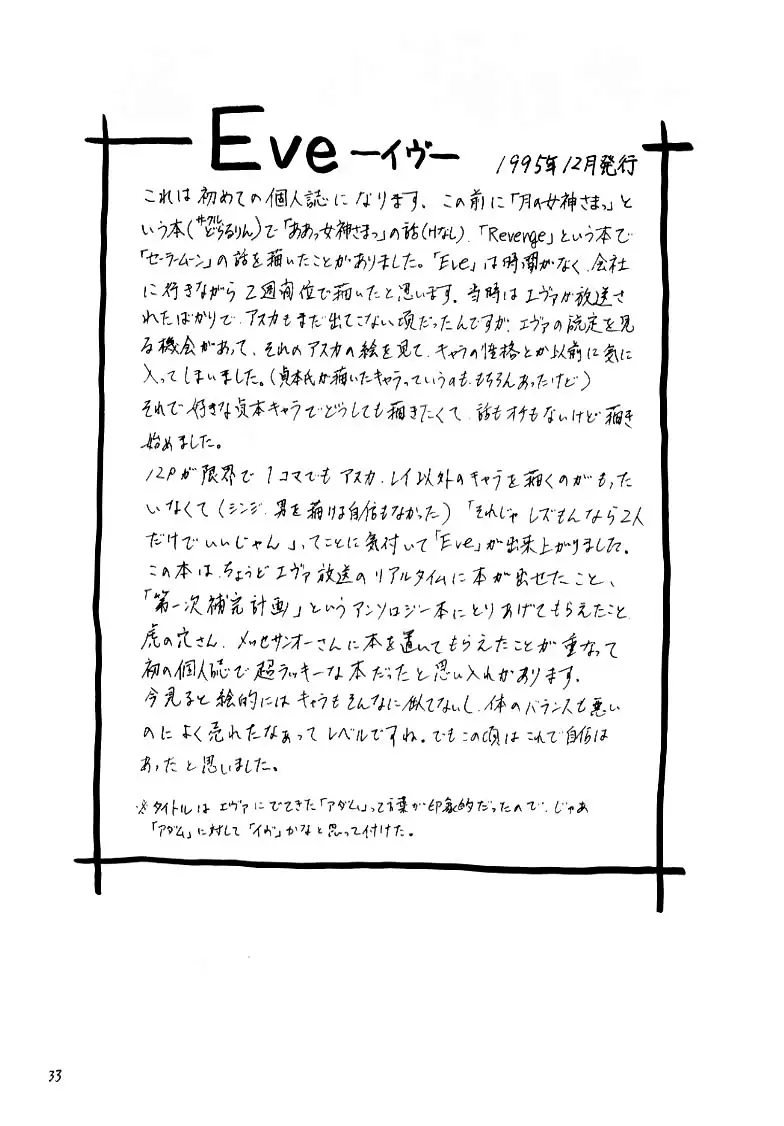 Eve ーイヴー 1995年12月発行
これは初めての個人誌になります、この前に「月の女神さまっ」と
いう本(サークルどらるりん)で「ああっ女神さまっ」の話(けなし)、「Revenge」という本で
「セーラームーン」の話を描いたことがありました。「Eve」は時間がなく、会社
に行きながら2週間位で描いたと思います。当時はエヴァが放送さ
れたばかりで、アスカもまだ出てこない頃だったんですが、エヴァの設定を見
る機会があって、それのアスカの絵を見て、キャラの性格とか以前に気に
入ってしまいました。(貞本氏が描いたキャラっていうのも、もちろんあったけど)
それで好きな貞本キャラでどうしても描きたくて、話もオチもないけど描き
始めました。
12Pが限界で1コマでもアスカ、レイ以外のキャラを描くのがもった
いなくて(シンジ、男を描ける自信もなかった)「それじゃレズもんなら2人
だけでいいじゃん」ってことに気付いて「Eve」が出来上がりました。
この本は、ちょうどエヴァ放送のリアルタイムに本が出せたこと、
「第一次補完計画」というアンソロジー本にとりあげてもらえたこと、
虎の穴さん、メッセサンオーさんに本を置いてもらえたことが重なって
初の個人誌で超ラッキーな本だったと思い入れがあります。
今見ると絵的にはキャラもそんなに似てないし、体のバランスも悪い
のによく売れたなぁってレベルですね。でもこの頃はこれで自信は
あったと思いました。
※タイトルはエヴァにでてきた「アダム」って言葉が印象的だったので、じゃあ
「アダム」に対して「イヴ」かなと思って付けた。
33